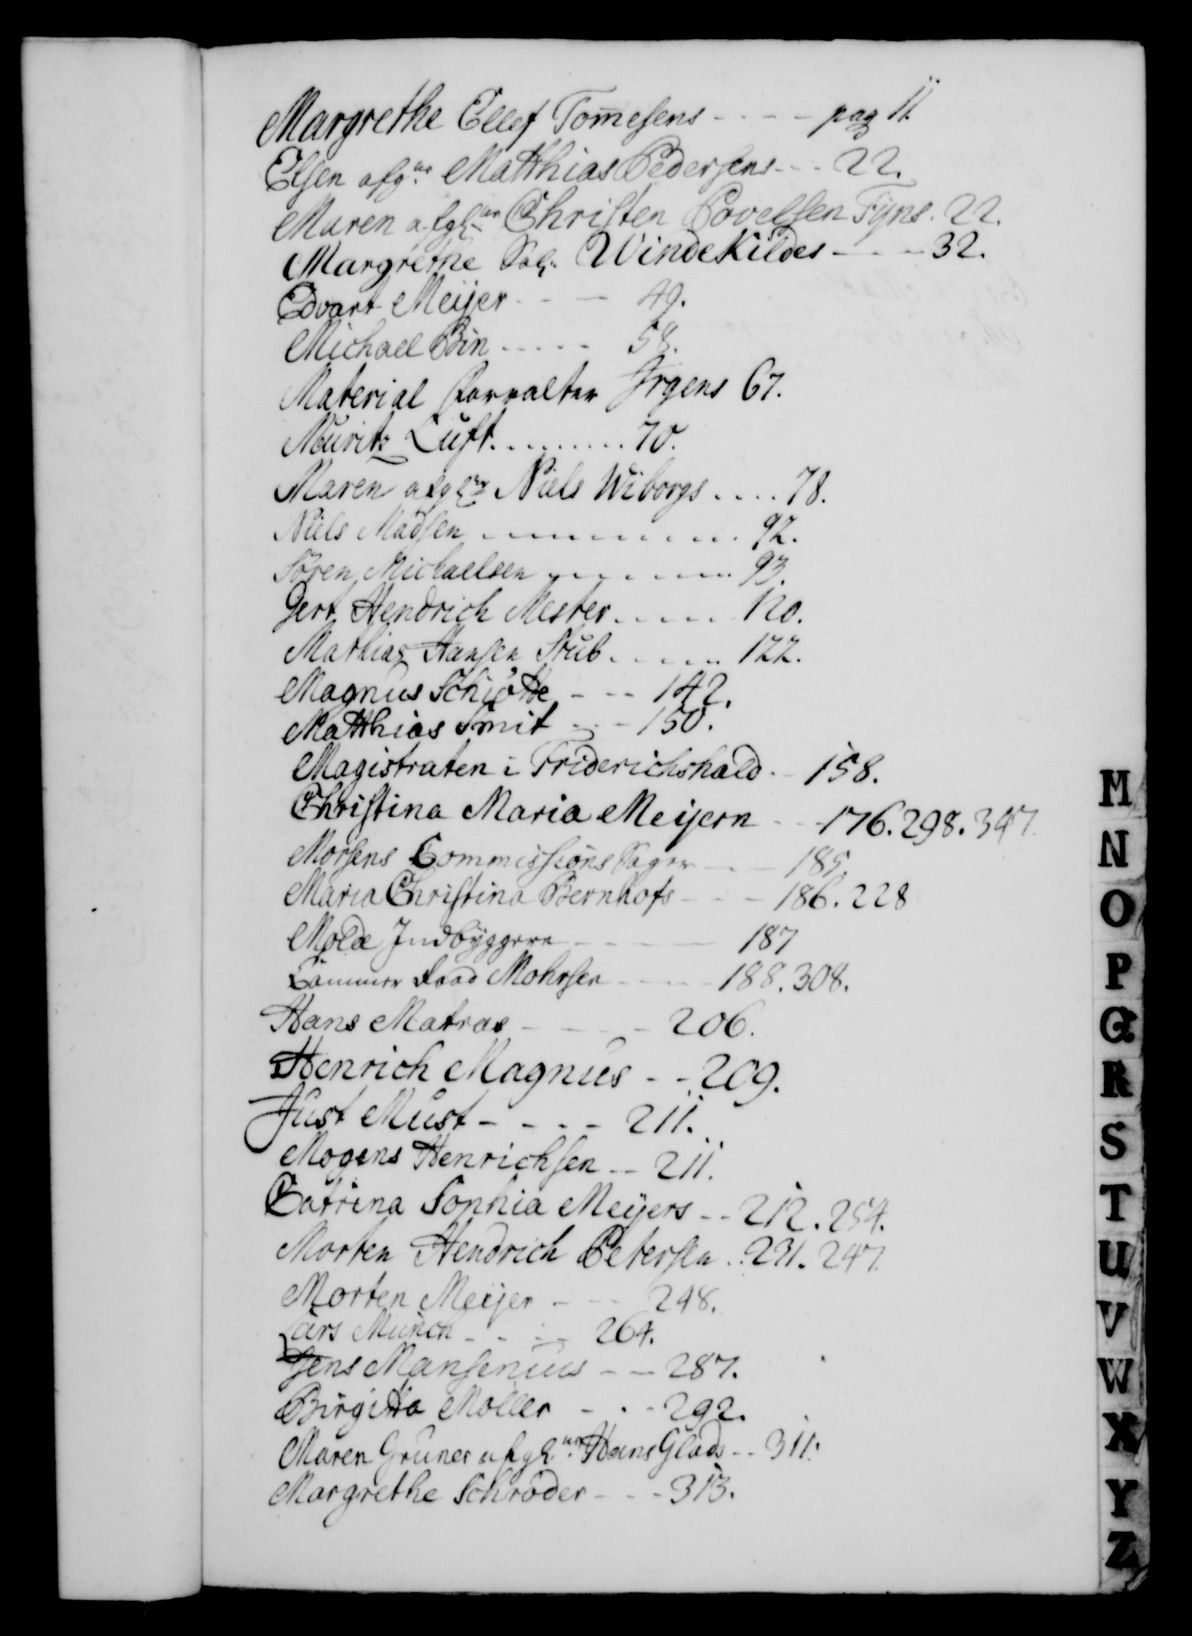 Margrethe Ellef Tom̄esens - - - - pag 11.
Elsen afg:ne Matthias Pedersens - - - 22.
Maren afgl:ne Christen Povelsen Fyns. 22.
Margrethe Sal: WindeKildes - - - 32.
Edvart Meijer - - - 49.
Michael Bin - - - - - 58.
Material forvalter Irgens 67.
Mauritz Luft. - - - - - - 70.
Maren afgl:ne Niels Wiborgs . . . . 78.
Niels Madsen - - - - - - - - 92.
Sören Michaelsen - - - - - - - 93.
Gert Hendrich Mester. - - - - 120.
Mathias Hansen Stub. - - - - 122.
Magnus Schiötte - - - 142.
Matthias Smit - - - 150.
Magistraten i Friderichshald. - 158.
Christina Maria Meijern - - 176. 298. 347.
Morsens Commissions Sager - - - 185.
Maria Christina Bernhofs - - - 186. 228
Molde Indbÿggere - - - - 187
Cammer Raad Mohrsen - - - - 188. 308.
Hans Matras - - - - 206.
Henrich Magnus - - 209.
Just Must - - - - 211.
Mogens Henrichsen - - 211.
Catrina Sophia Meyers - - 212. 254.
Morten Hendrich Petersen . . 231. 247.
Morten Meijer - - - 248.
Lars Münch - - - - 264.
Jens Mansenius - - 287.
Birgitta Möller - - - 292.
Maren Gruner afgl:ne Hans Glads - - 311.
Margrethe Schröder - - - 313.
M
N
O
P
Q
R
S
T
U
V
W
X
Y
Z